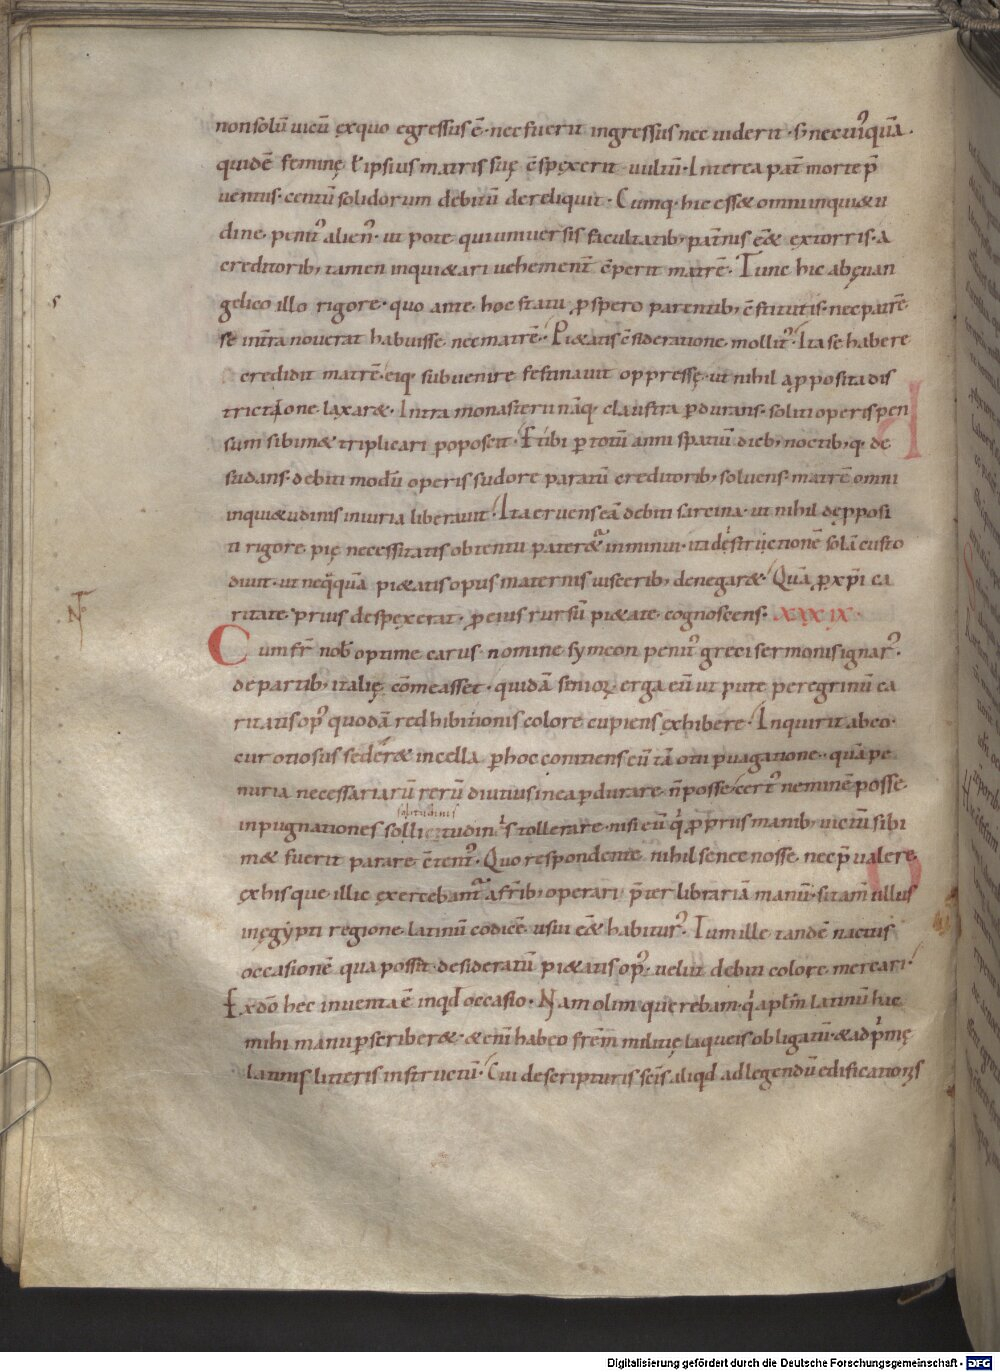 non solū uicū ęx quo egressus ē. nec fuerit ingressus nec uiderit. s; nec ūquā.
quidē feminę ł ipsius matris suę c̄spęxerit uultū. Interea pat̄ morte p̄
uentus. centū solidorum debitū dereliquit. Cumq; hic ess& omni inqui&u
dine penit᾿ alien᾿. ut pote qui uniuersis facultatib; pat̄nis ēē& extorris. a
creditorib; tamen inqui&ari uehement̄ c̄perit matrē. Tunc hic ab ęuan
gelico illo rigore. quo ante hoc statu p̱spero parentib; c̄stitutis. nec patrē
se int̄ra nouerat habuisse nec matrē. Pi&atis c̄sideratione mollit᾿. Ita se habere
credidit matrē. eiq; subuenire festinauit oppressę. ut nihil apposita dis
trictione laxar&. Intra monasterii nāq; claustra p̱durans. soliti operis pen
sum sibim& triplicari poposcit. Et ibi p̱ totū anni spatiū dieb; noctib; q; de
sudans. debiti modū operis sudore paratū creditorib; soluens. matrē omni
inqui&udinis iniuria liberauit. Ita eruens eā debiti sarcina. ut nihil dę pposi
ti rigore pię necessitatis obtentu pater&̄ inminui. ita dęstrictionē solā custo
diuit. ut neq̄quā pi&atis opus maternis uiscerib; denegar&. Quā p̱ xp̄i ca
ritate prius despęxerat. p̱ eius rursū pi&ate cognoscens. XXXIX.
Cum fr̄ nob̄ optime carus nomine symeon penit᾿ greci sermonis ignar᾿.
de partib; italię cōmeasset. quidā senioꝝ erga eū ut pute peregrinū ca
ritatis op᾿ quodā redhibitionis colore cupiens exhibere. Inquirit ab eo.
cur otiosus seder& in cella p̱ hoc coniciens eū tā otii p̱uagatione. quā pe
nuria necessariarū rerū diutius in ea p̱durare n̄ posse. cert᾿ neminē posse
solitudinis
inpugnationes sollicitudinis tollerare. nisi eū q̇ p̱ prius manib; uictū sibi
m& fuerit parare c̄tent᾿. Quo respondente nihil se nec nosse nec p̄ualere
ęx his que illic ęxercebant᾿ a fr̄ib; operari p̄ter librariā manū. si tam̄ ullus
in ęgẏpti regione latinū codicē usui ēē& habitur᾿. Tum ille tandē nactus
occasionē qua possit desideratū pi&atis op᾿. uelut debiti colore mercari.
Ex dō hec inuenta ē inqd̄ occasio. Nam olim querebam. q̇ apl̄m latinū hac
mihi manu p̱scriber&. &eni habeo fr̄em militię laqueis obligatū. & adp̄me
latinis litteris instructū. Cui de scripturis sc̄is aliqd̄ ad legendū edificationis